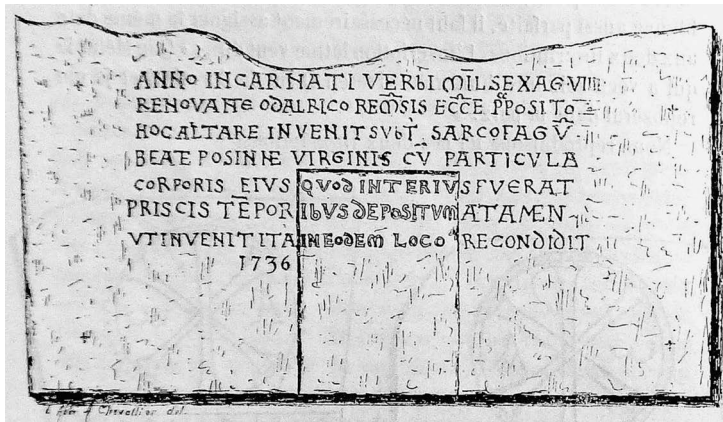 ANNO INCARNATI VERBI MĪL SEXAG VIIII
RENOVANTE ODALRICO REM̄SIS ECC̄E PPOSITO
HOC ALTARE INVENIT SVBT SARCOFAGV̄
BEATE POSINNE VIRGINIS CV̄ PARTICVLA
CORPORIS EIVS QVOD INTERIVS FVERAT
PRISCIS TĒPORIBVS DEPOSITVM ATAMEN
VT INVENIT ITA IN EODEM LOCO RECONDIDIT
1736
Chevallier del.